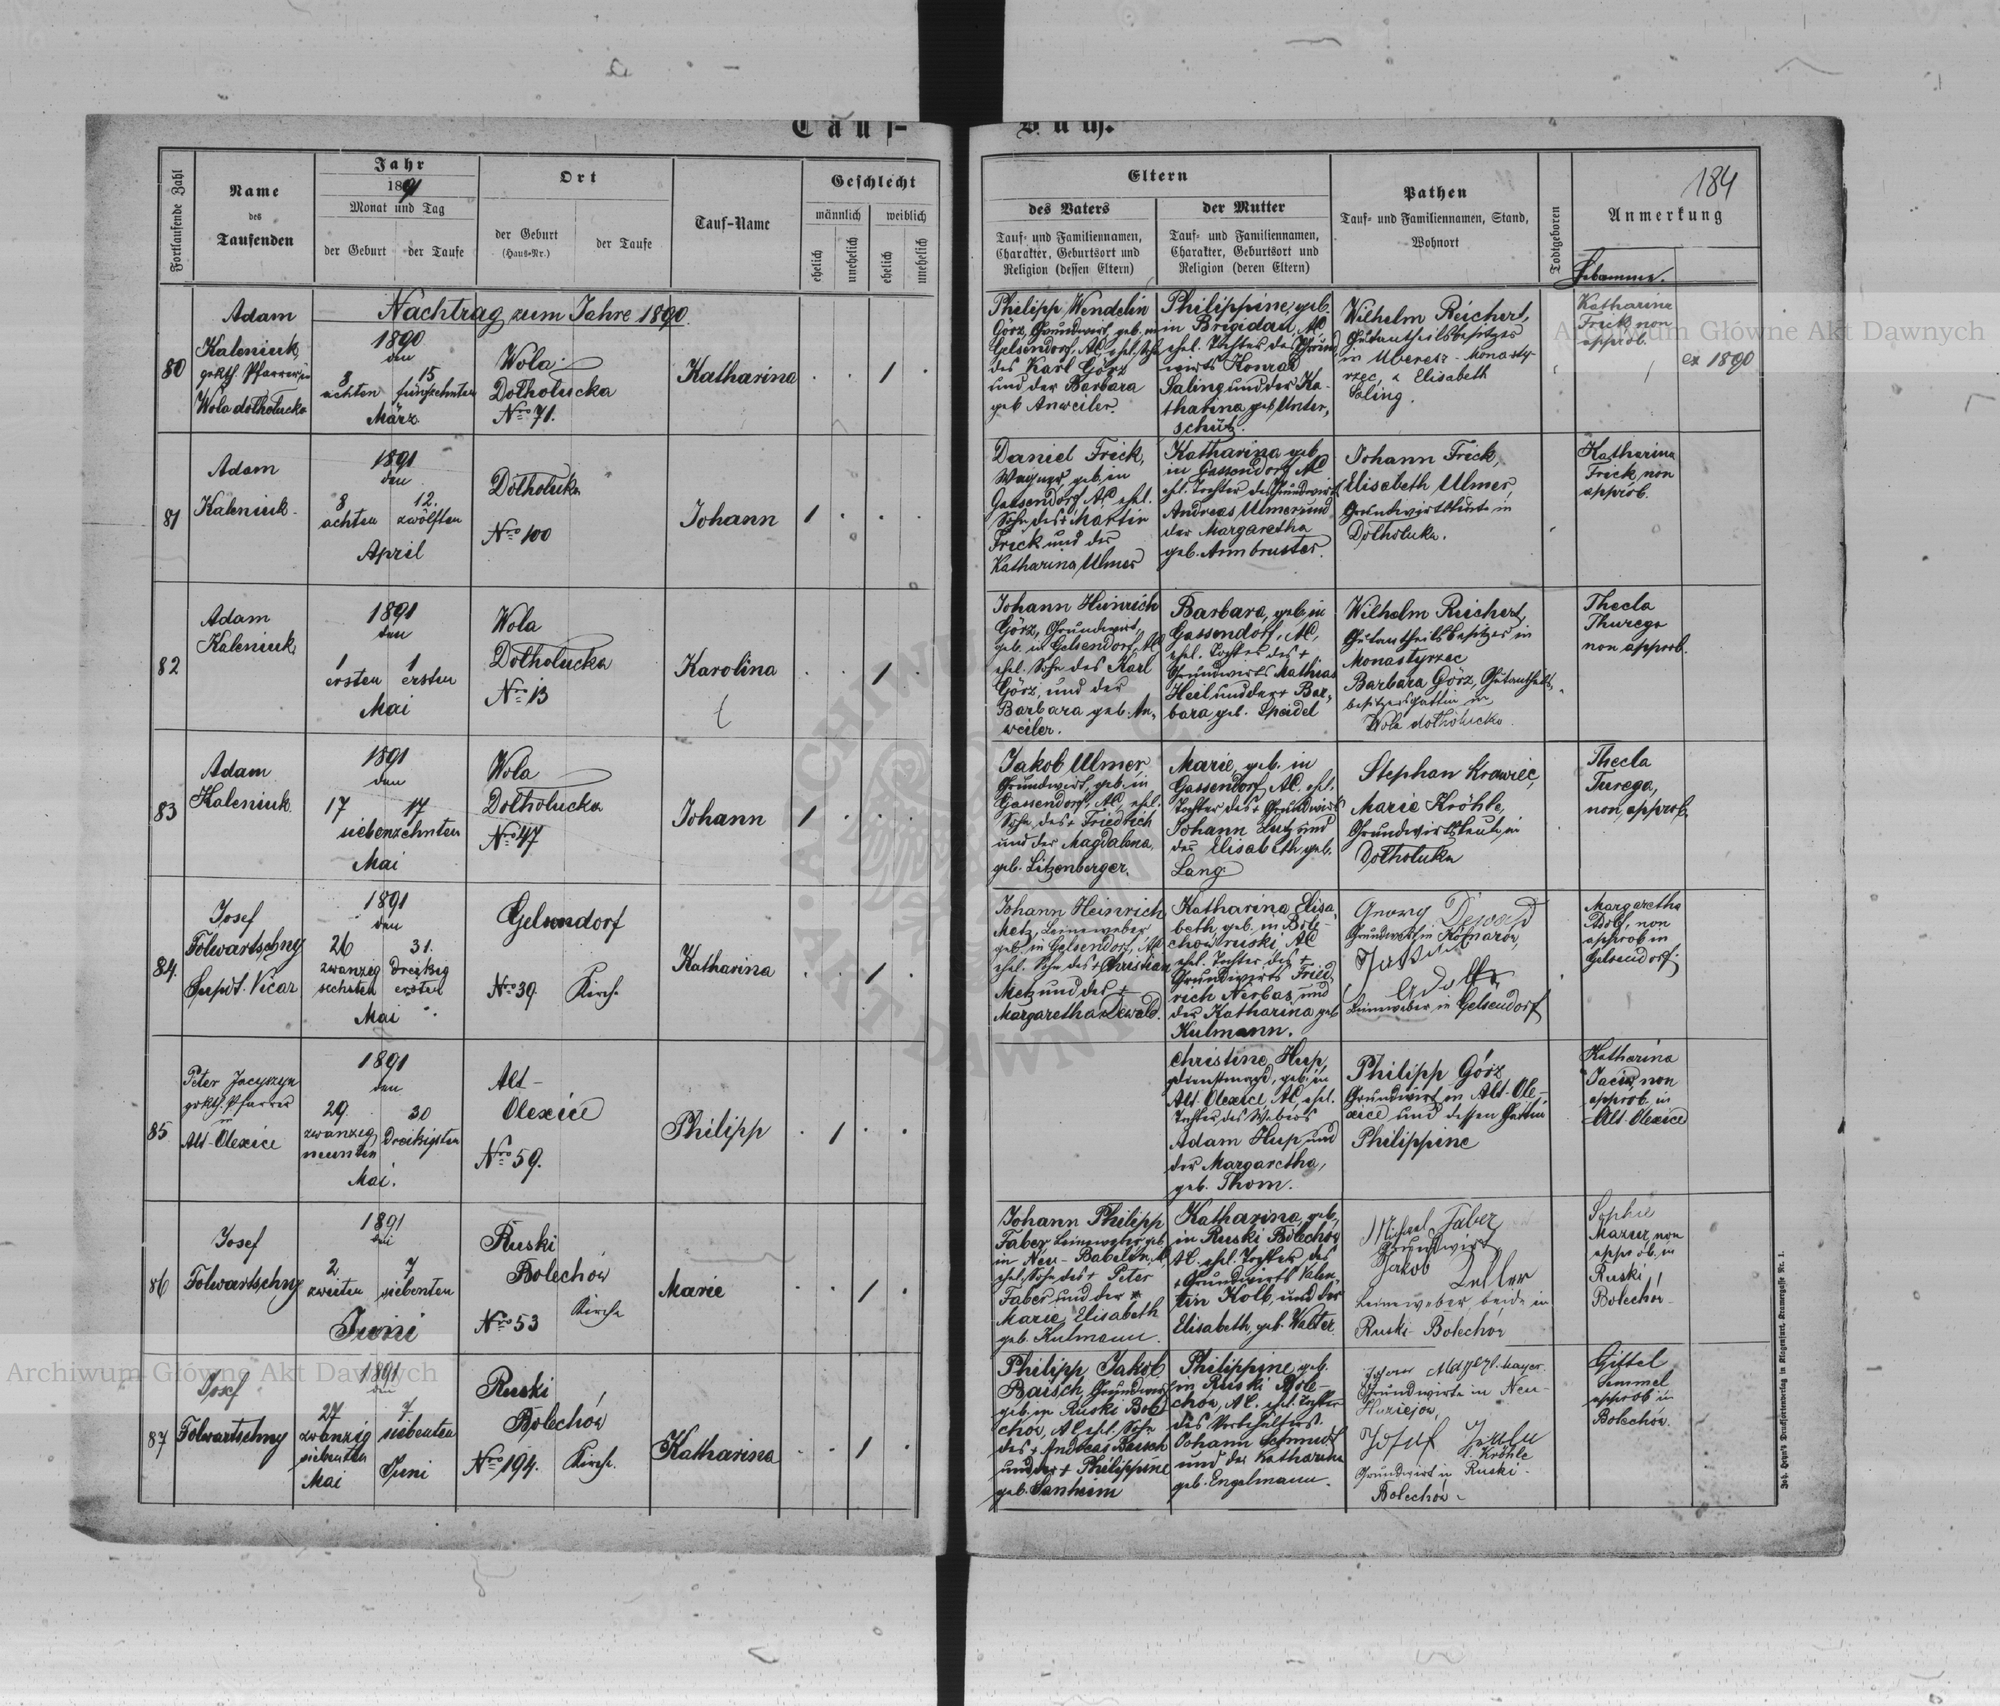 Tauf-
Buch.
184
Fortlaufende Zahl
Name
des
Taufenden
Jahr
1891
Monat und Tag
der Geburt
der Taufe
Ort
der Geburt
(Haus-Nr.)
der Taufe
Tauf-Name
Geschlecht
männlich
weiblich
ehelich
unehelich
ehelich
unehelich
Eltern
des Vaters
Tauf- und Familiennamen,
Charakter, Geburtsort und
Religion (dessen Eltern)
der Mutter
Tauf- und Familiennamen,
Charakter, Geburtsort und
Religion (deren Eltern)
Pathen
Tauf- und Familiennamen, Stand,
Wohnort
Todtgeboren
Anmerkung
Hebamme.
Nachtrag zum Jahre 1890.
80
Adam
Kaleniuk,
grkth. Pfarrer in
Wola dołhołucka
1890
den
8 15
achten fünfzehnten
März.
Wola
Dołhołucka
Nro 71.
Katharina
1
Philipp Wendelin
Görz, Grundwirt, geb. in
Gelsendorf, AC, ehel. Sohn
des Karl Görz
und der Barbara
geb. Anweiler.
Philippine, geb.
in Brigidau, AC
ehel. Tochter des Grund-
wirts Konrad
Saling und der Ka-
tharina geb. Unter-
schütz.
Wilhelm Reichert,
Gutantheilsbesitzer
in Uberesz-Monasty-
rzec, u. Elisabeth
Saling.
Katharina
Frick non
approb.
ex 1890
81
Adam
Kaleniuk
1891
den
8 12.
achten zwölften
April
Dołhołuka
Nro 100
Johann
1
Daniel Frick,
Wagner, geb. in
Gelsendorf, AC, ehel.
Sohn des + Martin
Frick und der
Katharina Ulmer
Katharina geb.
in Gassendorf AC
ehl. Tochter des Grundwirts
Andreas Ulmer und
der Margaretha
geb. Armbruster.
Johann Frick,
Elisabeth Ulmer,
Grundwirtsleute in
Dołhołuka.
Katharina
Frick, non
approb.
82
Adam
Kaleniuk
1891
den
1 1
ersten ersten
Mai
Wola
Dołhołucka
Nro 13
Karolina
1
Johann Heinrich
Görz, Grundwirt,
geb. in Gelsendorf, AC
ehel. Sohn des Karl
Görz, und der
Barbara geb. An-
weiler.
Barbara, geb. in
Gassendorf, AC,
ehel. Tochter des +
Grundwirts Mathias
Heil und der + Bar-
bara geb. Speidel
Wilhelm Reichert,
Gutantheilsbesitzer in
Monastyrzec
Barbara Görz, Gutantheils-
besitzersgattin in
Wola dołhołucka.
Thecla
Thurega
non approb.
83
Adam
Kaleniuk
1891
den
17 17
siebenzehnten
Mai
Wola
Dołhołucka
Nro 47
Johann
1
Jakob Ulmer
Grundwirt, geb. in
Gassendorf, AC, ehl.
Sohn des + Friedrich
und der Magdalena
geb. Litzenberger.
Marie, geb. in
Gassendorf, AC, ehl.
Tochter des + Grundwirts
Johann Lutz und
der Elisabeth geb.
Lang
Stephan Krawiec,
Marie Kröhle,
Grundwirtsleute in
Dołhołuka
Thecla
Turega,
non approb.
84.
Josef
Folwartschny
Superdt. Vicar
1891
den
26 31.
zwanzig dreißig
sechsten ersten
Mai
Gelsendorf
Nro 39. Kirche
Katharina
1
Johann Heinrich
Metz, Leineweber
geb. in Gelsendorf, AC
ehl. Sohn des + Christian
Metz und der +
Margaretha Dewald.
Katharina Elisa-
beth, geb. in Bole-
chow ruski, AC
ehl. Tochter des +
Grundwirts Fried-
rich Nerbas, und
der Katharina geb
Kulmann.
Georg Dewald
Grundwirt in Komarow,
Leineweber in Gelsendorf
Margaretha
Dolf, non
approb in
Gelsendorf.
85.
Peter Jacyszyn
grkth. Pfarrer
in
Alt-Olexice
1891
den
29. 30
zwanzig dreißigsten
neunten
Mai.
Alt-
Olexice
Nro 59.
Philipp
1
Christine Hup,
Dienstmagd, geb. in
Alt-Olexice AC, ehl.
Tochter des Webers
Adam Hup und
der Margaretha,
geb. Thom.
Philipp Görz
Grundwirt in Alt-Ole-
xice und dessen Gattin
Philippine
Katharina
non
approb. in
Alt-Olexice
86
Josef
Folwartschny
1891
den
2 7
zweiten siebenten
Juni
Ruski
Bolechów
Nro 53 Kirche
Marie
1
Johann Philipp
Faber, Leineweber geb.
in Neu-Babelin, AC
ehel. Sohn des + Peter
Faber und der
Marie Elisabeth
geb. Kulmann.
Katharina, geb.
in Ruski Bolechów
AC. ehl. Tochter des
+ Grundwirts Valen-
tin Kolb, und der
Elisabeth, geb. Walter.
Michael Faber
Grundwirt
Jakob Zeller
Leineweber beide in
Ruski-Bolechow
Sophie
Mazur, non
approb. in
Ruski
Bolechów
87
Josef
Folwartschny
1891
den
27 7
zwanzig siebenten
siebenten
Mai Juni
Ruski
Bolechów
Nro 194. Kirche.
Katharina
1
Philipp Jakob
Baisch, Grundwirt
geb. in Ruski Bole-
chow, AC ehl. Sohn
des + Andreas Baisch
und der + Philippine
geb. Sanheim
Philippine geb.
in Ruski Bole-
chow, AC. ehl. Tochter
des
Johann Schmidt
und der Katharina
geb. Engelmann.
Mayer.
Grundwirt in Neu-
Josef
Kröhle
Grundwirt in Ruski-
Bolechów
Gittel
Semmel
approb in
Bolechów
Archiwum Główne Akt Dawnych
Archiwum Główne Akt Dawnych